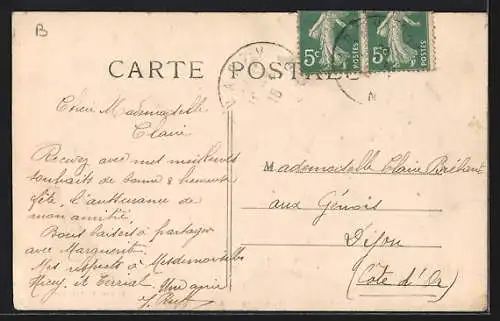 B
5c POSTES 5c POSTES
CARTE POSTALE
Mademoiselle
Claire
Recevez avec mes meilleurs
souhaits de bonne & heureuse
fête, l'assurance de
mon amitié.
Bons baisers à partager
avec Marguerite
Mes respects à Mesdemoiselles
et Une amie
Mademoiselle Claire Bréhant
aux Génois
Dijon
(Côte d'Or)